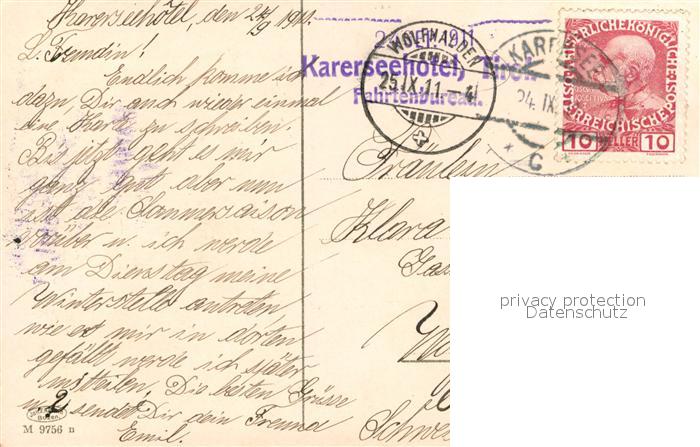 Karerseehôtel, den 24/9 1911.
L. Freundin!
Endlich komme ich
dazu Dir auch wieder einmal
eine Karte zu schreiben.
Bis jetzt geht es mir
ganz gut aber nun
ist die Sommersaison
vorüber u. ich werde
am Dienstag meine
Winterstelle antreten,
wie es mir in dorten
gefällt werde ich später
mitteilen. Die besten Grüsse
sendet Dir dein Freund
Emil.
M 9756 n
2
Karerseehotel, Tirol
Fahrtenbureau.
WOLFHALDEN
25.IX.11.-4
KARERSEE
24.IX.
* C *
KAISERLICHE KÖNIGLICHE
ÖSTERREICHISCHE POST
10 HELLER 10
Fräulein
Klara
Gas
Schwe
privacy protection
Datenschutz